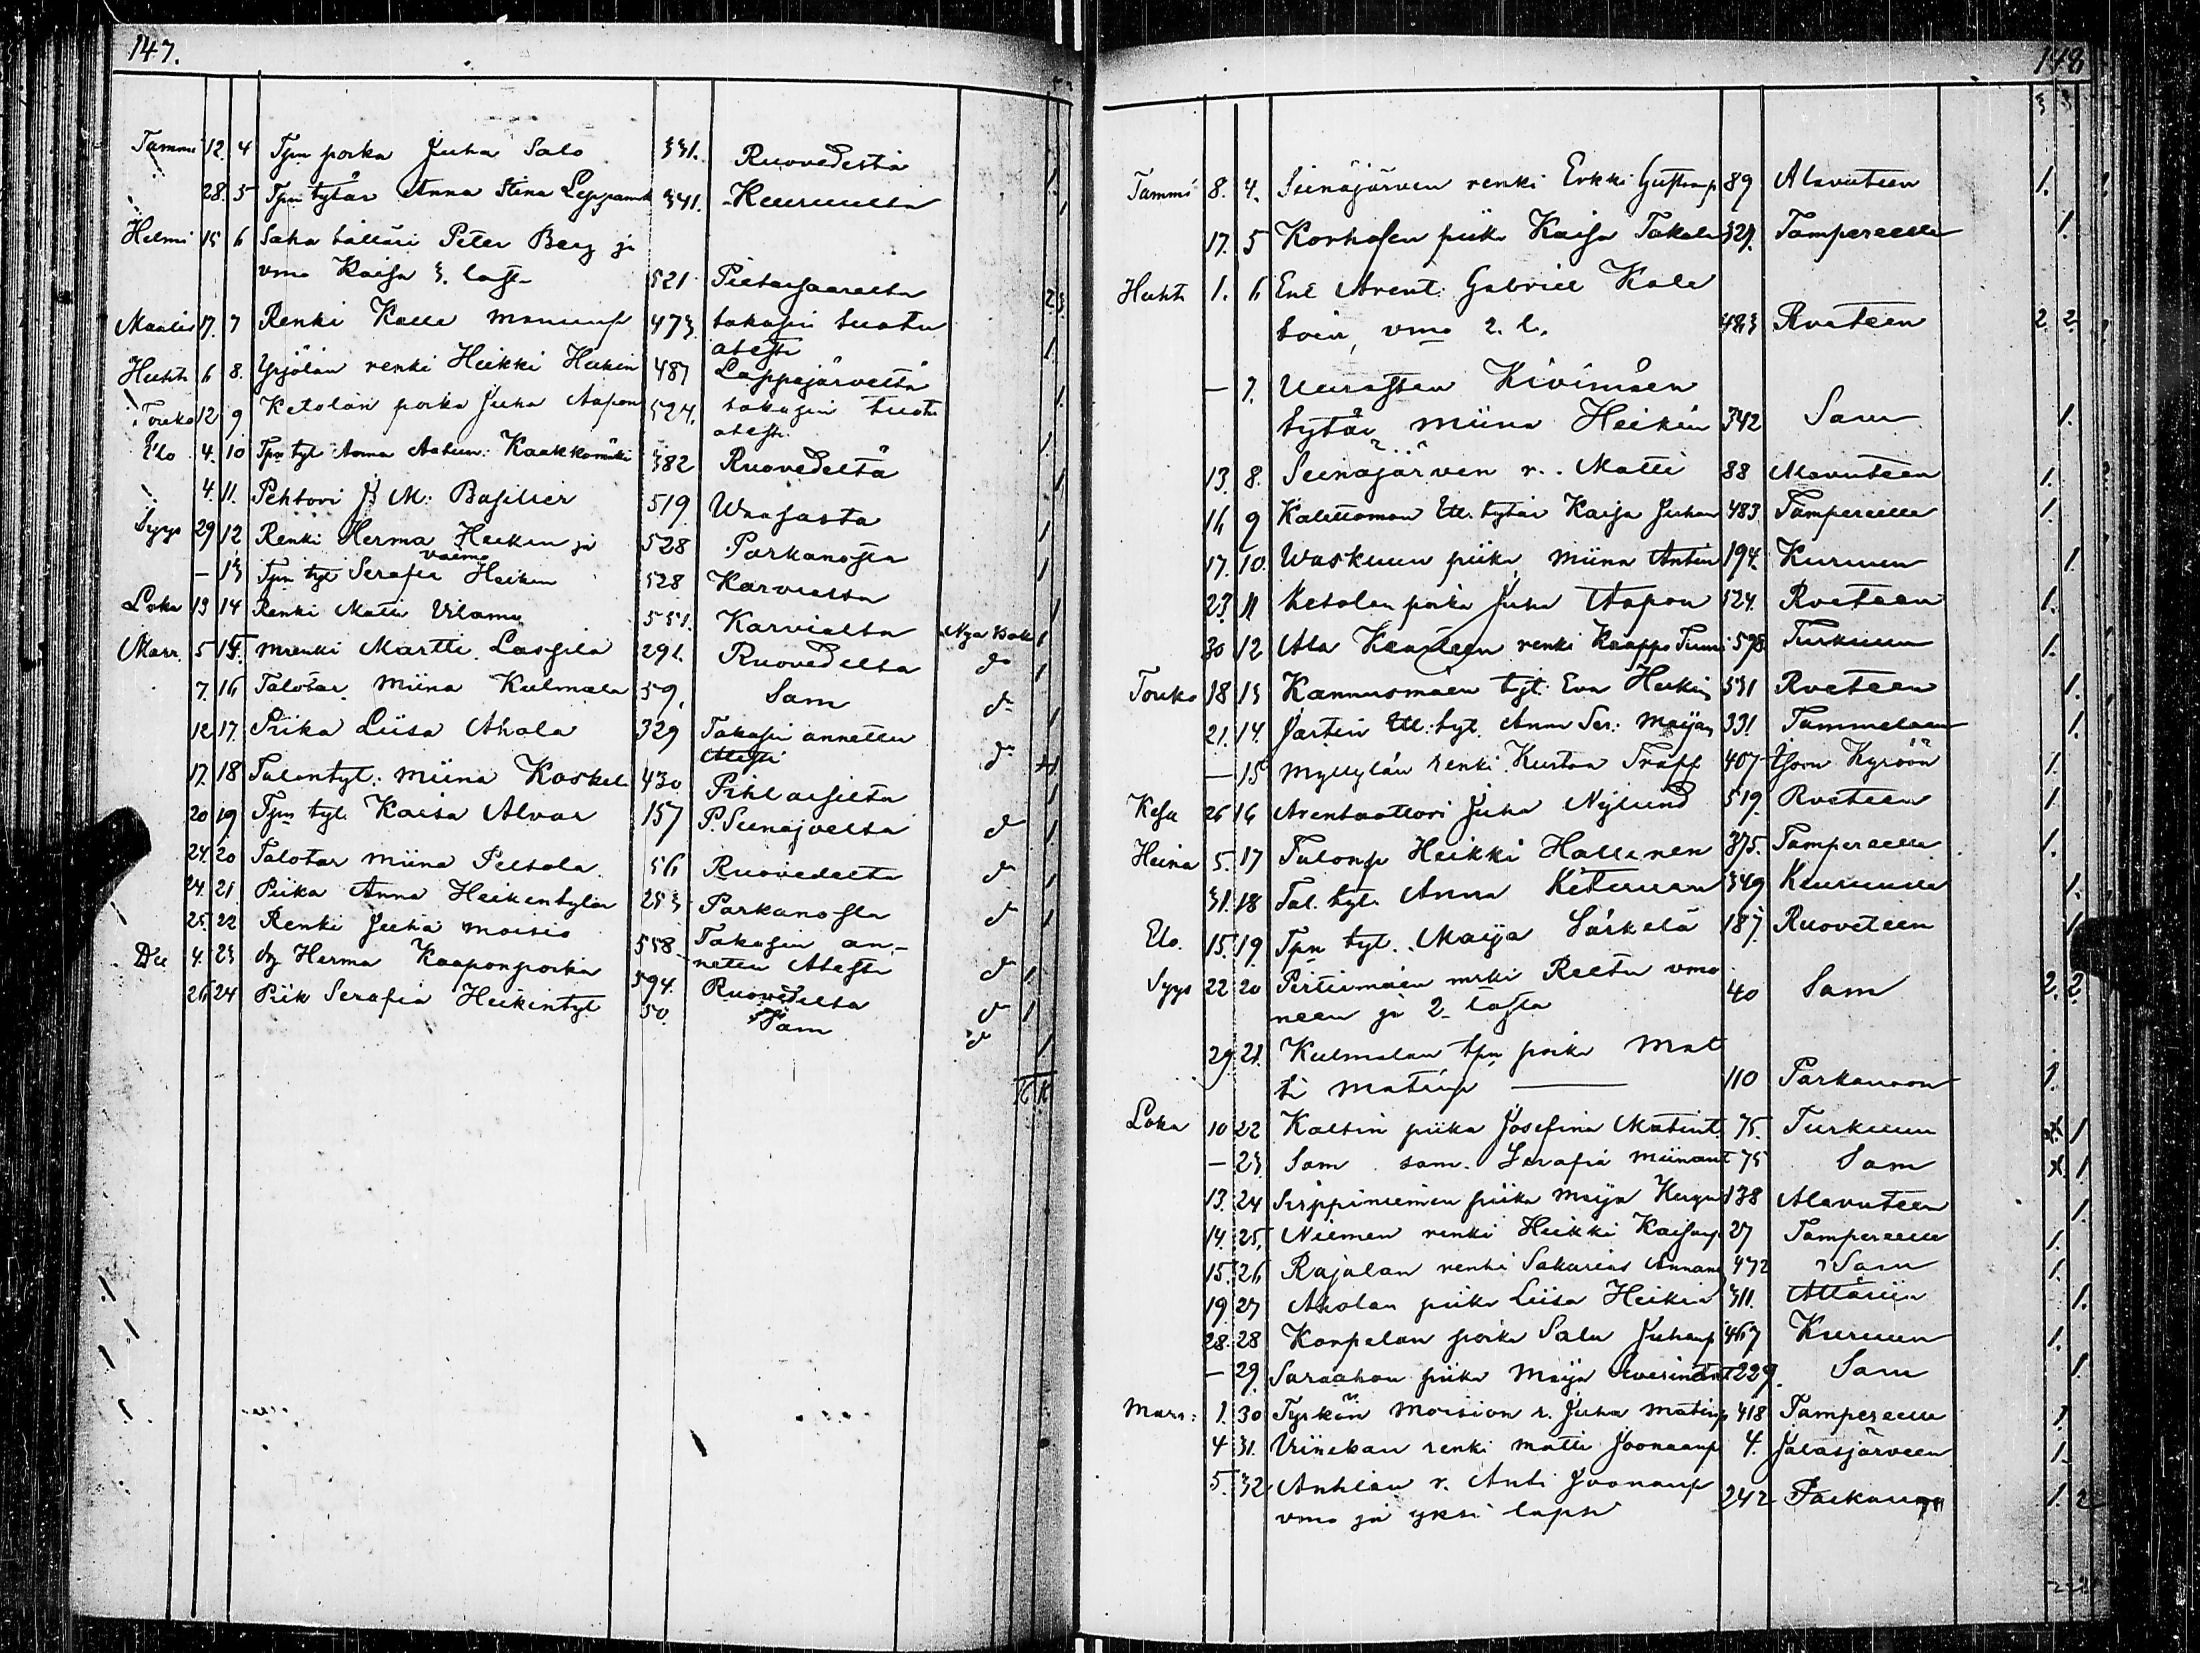 147.
Tammi 12. 4 Tpn poika Juha Salo 331. Ruovedestä 1.
28. 5 Tpn tytär Anna Stina 341. Keuruulta 1
Helmi 15 6 Saha tälläri Peter Berg ja
vmo Kaisa 3. last. 521 Pietarsaaresta 2. 3.
Maalis 17. 7 Renki Kalle 473 takasin tuotu
atesti 1.
Huhti 6 8. Yrjölän renki Heikki Heikin 487 Lappajärveltä 1.
Touko 12 9 Ketolan poika Juha Aapon 524. takasin tuotu
atesti 1.
Elo 4. 10 Tpn tyt Anna Kaakkomäki 382 Ruovedeltä 1
4. 11. Pehtori J M: Basilier 519 Waasasta 1
Syys 29 12 Renki Herma Heikin ja 528 Parkanosta 1
vaimo
— 13 Tpn tyt Serafia Heikin 528 Karvialta 1
Loka 13 14 Renki Matti 551. Karvialta Nya Bok 1
Marr. 5 15. mrenki Martti Lassila 291. Ruovedelta do 1
7. 16 Talotar Miina Kulmala 59. Sam do 1
12 17. Piika Liisa Ahola 329 Takasin annettu
Atesti do
17. 18 Talontyt: Miina Koskel 430 Pihlajsilta 1
20 19 Tpn tyt. Kaisa Alvar 157 P. Seinäjoelta do 1.
24. 20 Talotar Miina Peltola 56 Ruovedelta do 1
24. 21 Piika Anna Heikentylär 253 Parkanosta do 1
25. 22 Renki Juha Moisio 558 Takasin an-
netu Atesti do 1
De 4. 23 Herma Kaaponpoika 594. Ruovedelta do 1
26 24 Piik Serafia Heikintyt 50. Sam do 1
148
Tammi 8. 4. Seinäjärven renki Erkki 89 Alavuteen 1.
17. 5 Korhosen piika Kaisa Takala 329. Tampereelle 1.
Huhti 1. 6 Ent Arent. Gabriel Kale
toin, vmo 2. l. 483 Rveteen 2. 2.
— 7. Uurasten Kivimäen
tytär Miina Heikin 342 Sam 1.
13. 8. Seinäjärven r. Matti 88 Alavuteen 1.
16 9 Kalettoman tytär Kaisa Juhan 483 Tampereelle 1.
17. 10. Waskuun piika Miina Antin 194. Kuruun 1.
23. 11 Ketolan poika Juha Aapon 524. Rveteen 1.
30 12 Ala renki Kaappo 578 Turkuun 1.
Touko 18 13 Kannusmäen tyt. Eva Heikin 531 Rveteen 1.
21. 14. Jartin tyt. Anna Ser: Maijan 331 Tammelaan 1.
— 15 Myllylän renki Kustaa 407 Kyröön 1.
Kesä 26 16 Arentaattori Juha Nylund 519. Rveteen 1
Heina 5. 17 Talonp Heikki Hallanen 375. Tampereelle 1.
31. 18 Tal. tyt. Anna 349 Keuruulle 1.
Elo. 15. 19. Tpn tyt. Maija Särkelä 187. Ruoveteen 1
Syys 22 20 Pirttimäen mrki Reetu vmo
neen ja 2 lasta 40 Sam 2. 2
29. 21. Kulmalan tpn poika Mat
ti Matinp — 110 Parkanoon 1.
Loka 10 22 Kaltin piika Josefina Matint. 75. Turkuun 1
— 23 Sam sam. Serafia Miinant 75 Sam 1
13. 24 piika Maija 138 Alavuteen 1.
14. 25. Niemen renki Heikki Kaisanp 27 Tampereelle 1.
15. 26 Rajalan renki Sakarias Annanp 472 Sam 1.
19. 27 Aholan piika Liisa Heikin 311. Ätläriin 1.
28. 28 Korpelan poika Salu Juhanp 467 Kuruun 1.
— 29. Saraahon piika Maija 229. Sam 1.
Marr: 1. 30 Tyrkön Moision r. Juha Matinp 418 Tampereelle 1.
4 31. renki Matti Joonaanp 4. Jalasjärveen 1.
5. 32 Anhilan r. Anti Joonanp
vmo ja yksi lapsi 242 1. 2